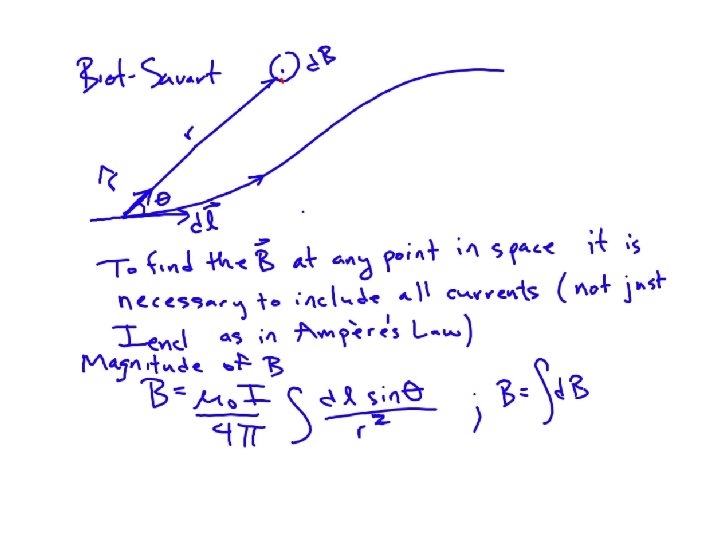 Biot-Savart
dB
r
r̂
θ
dl⃗
To find the B⃗ at any point in space it is
necessary to include all currents (not just
Iencl as in Ampère's Law)
Magnitude of B
B = μ₀I/4π ∫ dl sinθ/r² ; B = ∫dB